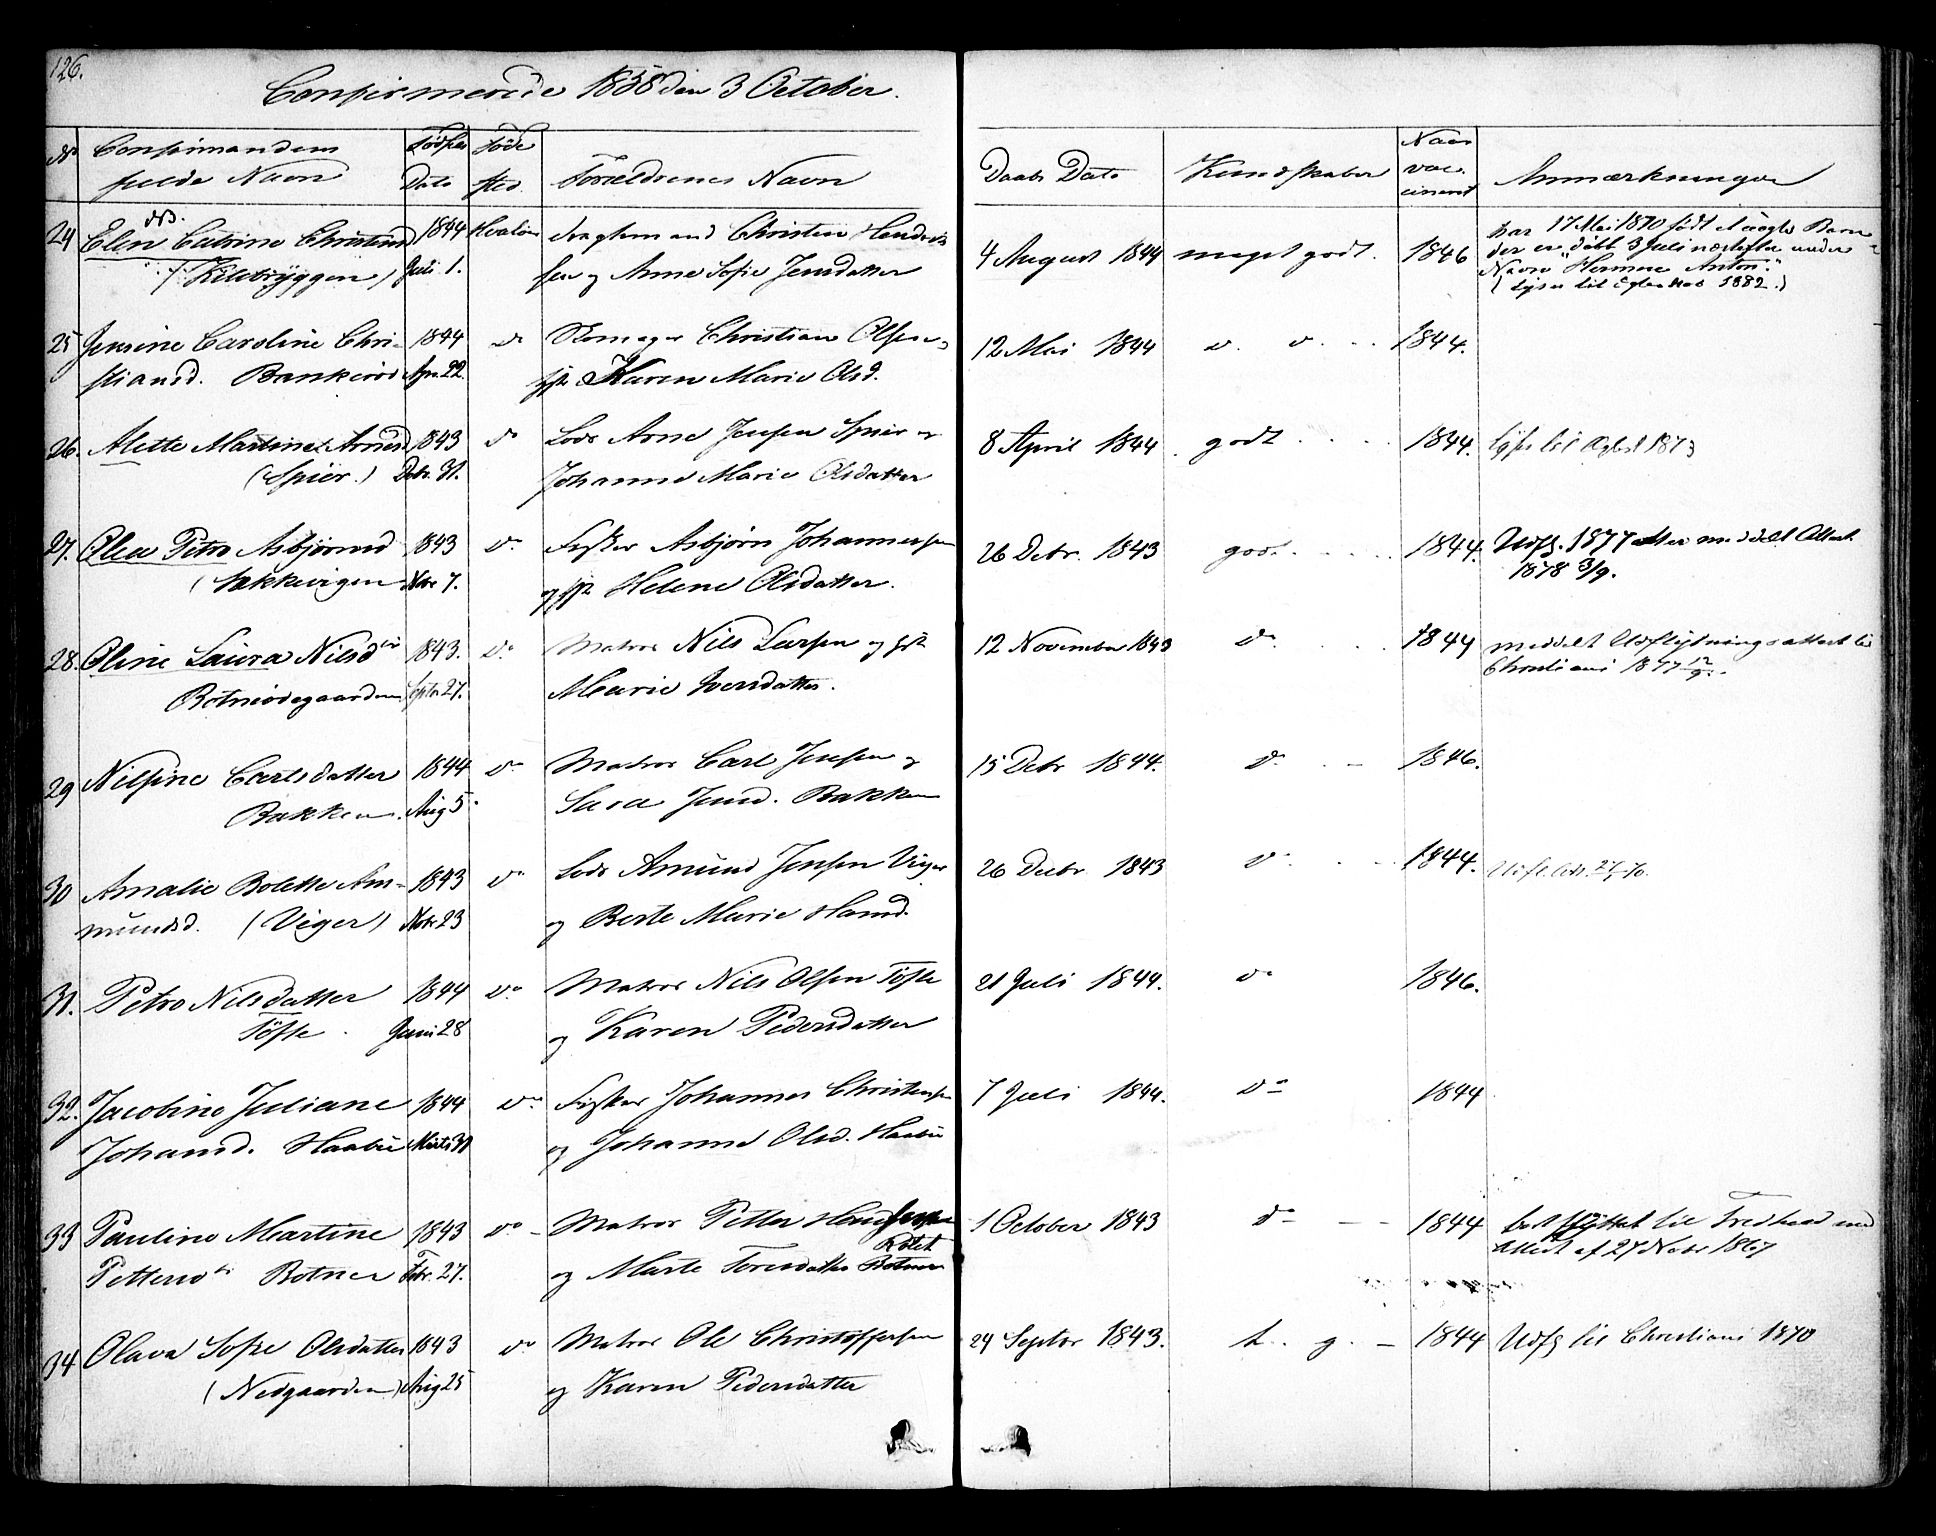 126.
Confirmerede 1858 den 3 October.
No Confirmandens fulde Navn Fødsels Dato Føde sted. Forældrenes Navn Daabs Dato Kundskaber Naar vaccineret Anmærkninger
NB.
24 Elen Catrine Christensd 1844 Hvaløer Christen Hendrik 4 August 1844 meget godt. 1846 har 17 Mai 1870 født Barn
(Kilebryggen) Juli 1. sen og Anne Sofie Jensdatter der er døbt 3 Juli under
Navn "Herman Anton."
1882.)
25 Jensine Caroline Chri- 1844 do Skomager Christian Olsen 12 Mai 1844 d. d. 1844.
stiansd. Bankerød Apr. 22. Karen Marie Olsd.
26. Alette Martine Arnesd 1843 do Lods Arne Jensen Spiær og 8 April 1844 godt 1844. 1873
(Spiær.) Dcbr. 31. Johanne Marie Olsdatter
27. Olea Petra Asbjørnsd 1843 do Fisker Asbjørn Johannessen 26 Decbr. 1843 godt 1844. Udfl. 1877 meddelt Attest
Novbr 7. og Helene Olsdatter. 1878 3/9.
28. Oline Laura Nilsdtr 1843. do Matros Nils Larsen og 12 November 1843 do 1844 meddelt Udflytningsattest til
Septbr 27. Marie Iversdatter. Christiani
29 Nilsine Carlsdatter 1844 do Matros Carl Jensen og 15 Decbr 1844. do 1846.
Bakken. Aug 5. Sara Jensd. Bakken
30 Amalie Bolette Am- 1843 do Lods Amund Jensen Viger 26 Decbr 1843 do 1844.
mundsd. (Viger) Novbr 23 og Berte Marie Hansd.
31. Petra Nilsdatter 1844 do Matros Nils Olsen Tofte 21 Juli 1844. do 1846.
Tofte. Juni 28 og Karen Pedersdatter
32. Jacobine Juliane 1844 do Fisker Johannes Christensen 7 Juli 1844. do 1844
Johansd. Haabu og Johanne Olsd. Haabu
33 Pauline Martine 1843 do Matros Petter 1 October 1843 do 1844 flyttet til Fredhald med
Pettersdtr Botner Febr. 27. og Marte Botner Attest af 27 Novbr 1867
34 Olava Sofie Olsdatter 1843 do Matros Ole Christoffersen 24 Septbr 1843. t. g. 1844 Udfl til Christiani 1870
(Nedgaarden) Aug 25 og Karen Pedersdatter